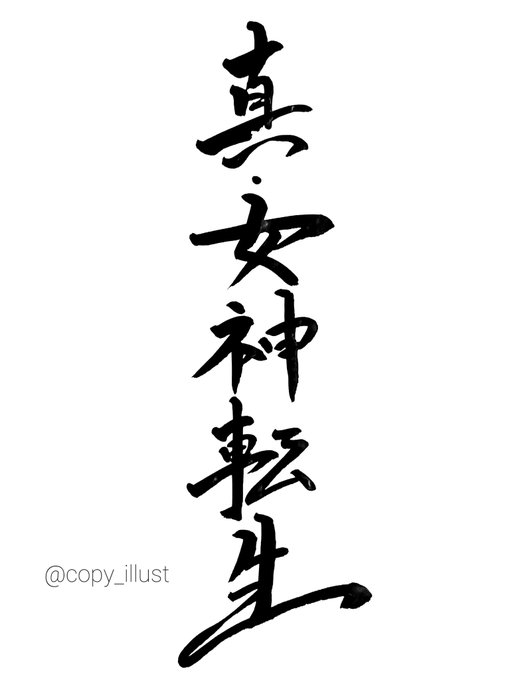 真・女神転生
@copy_illust